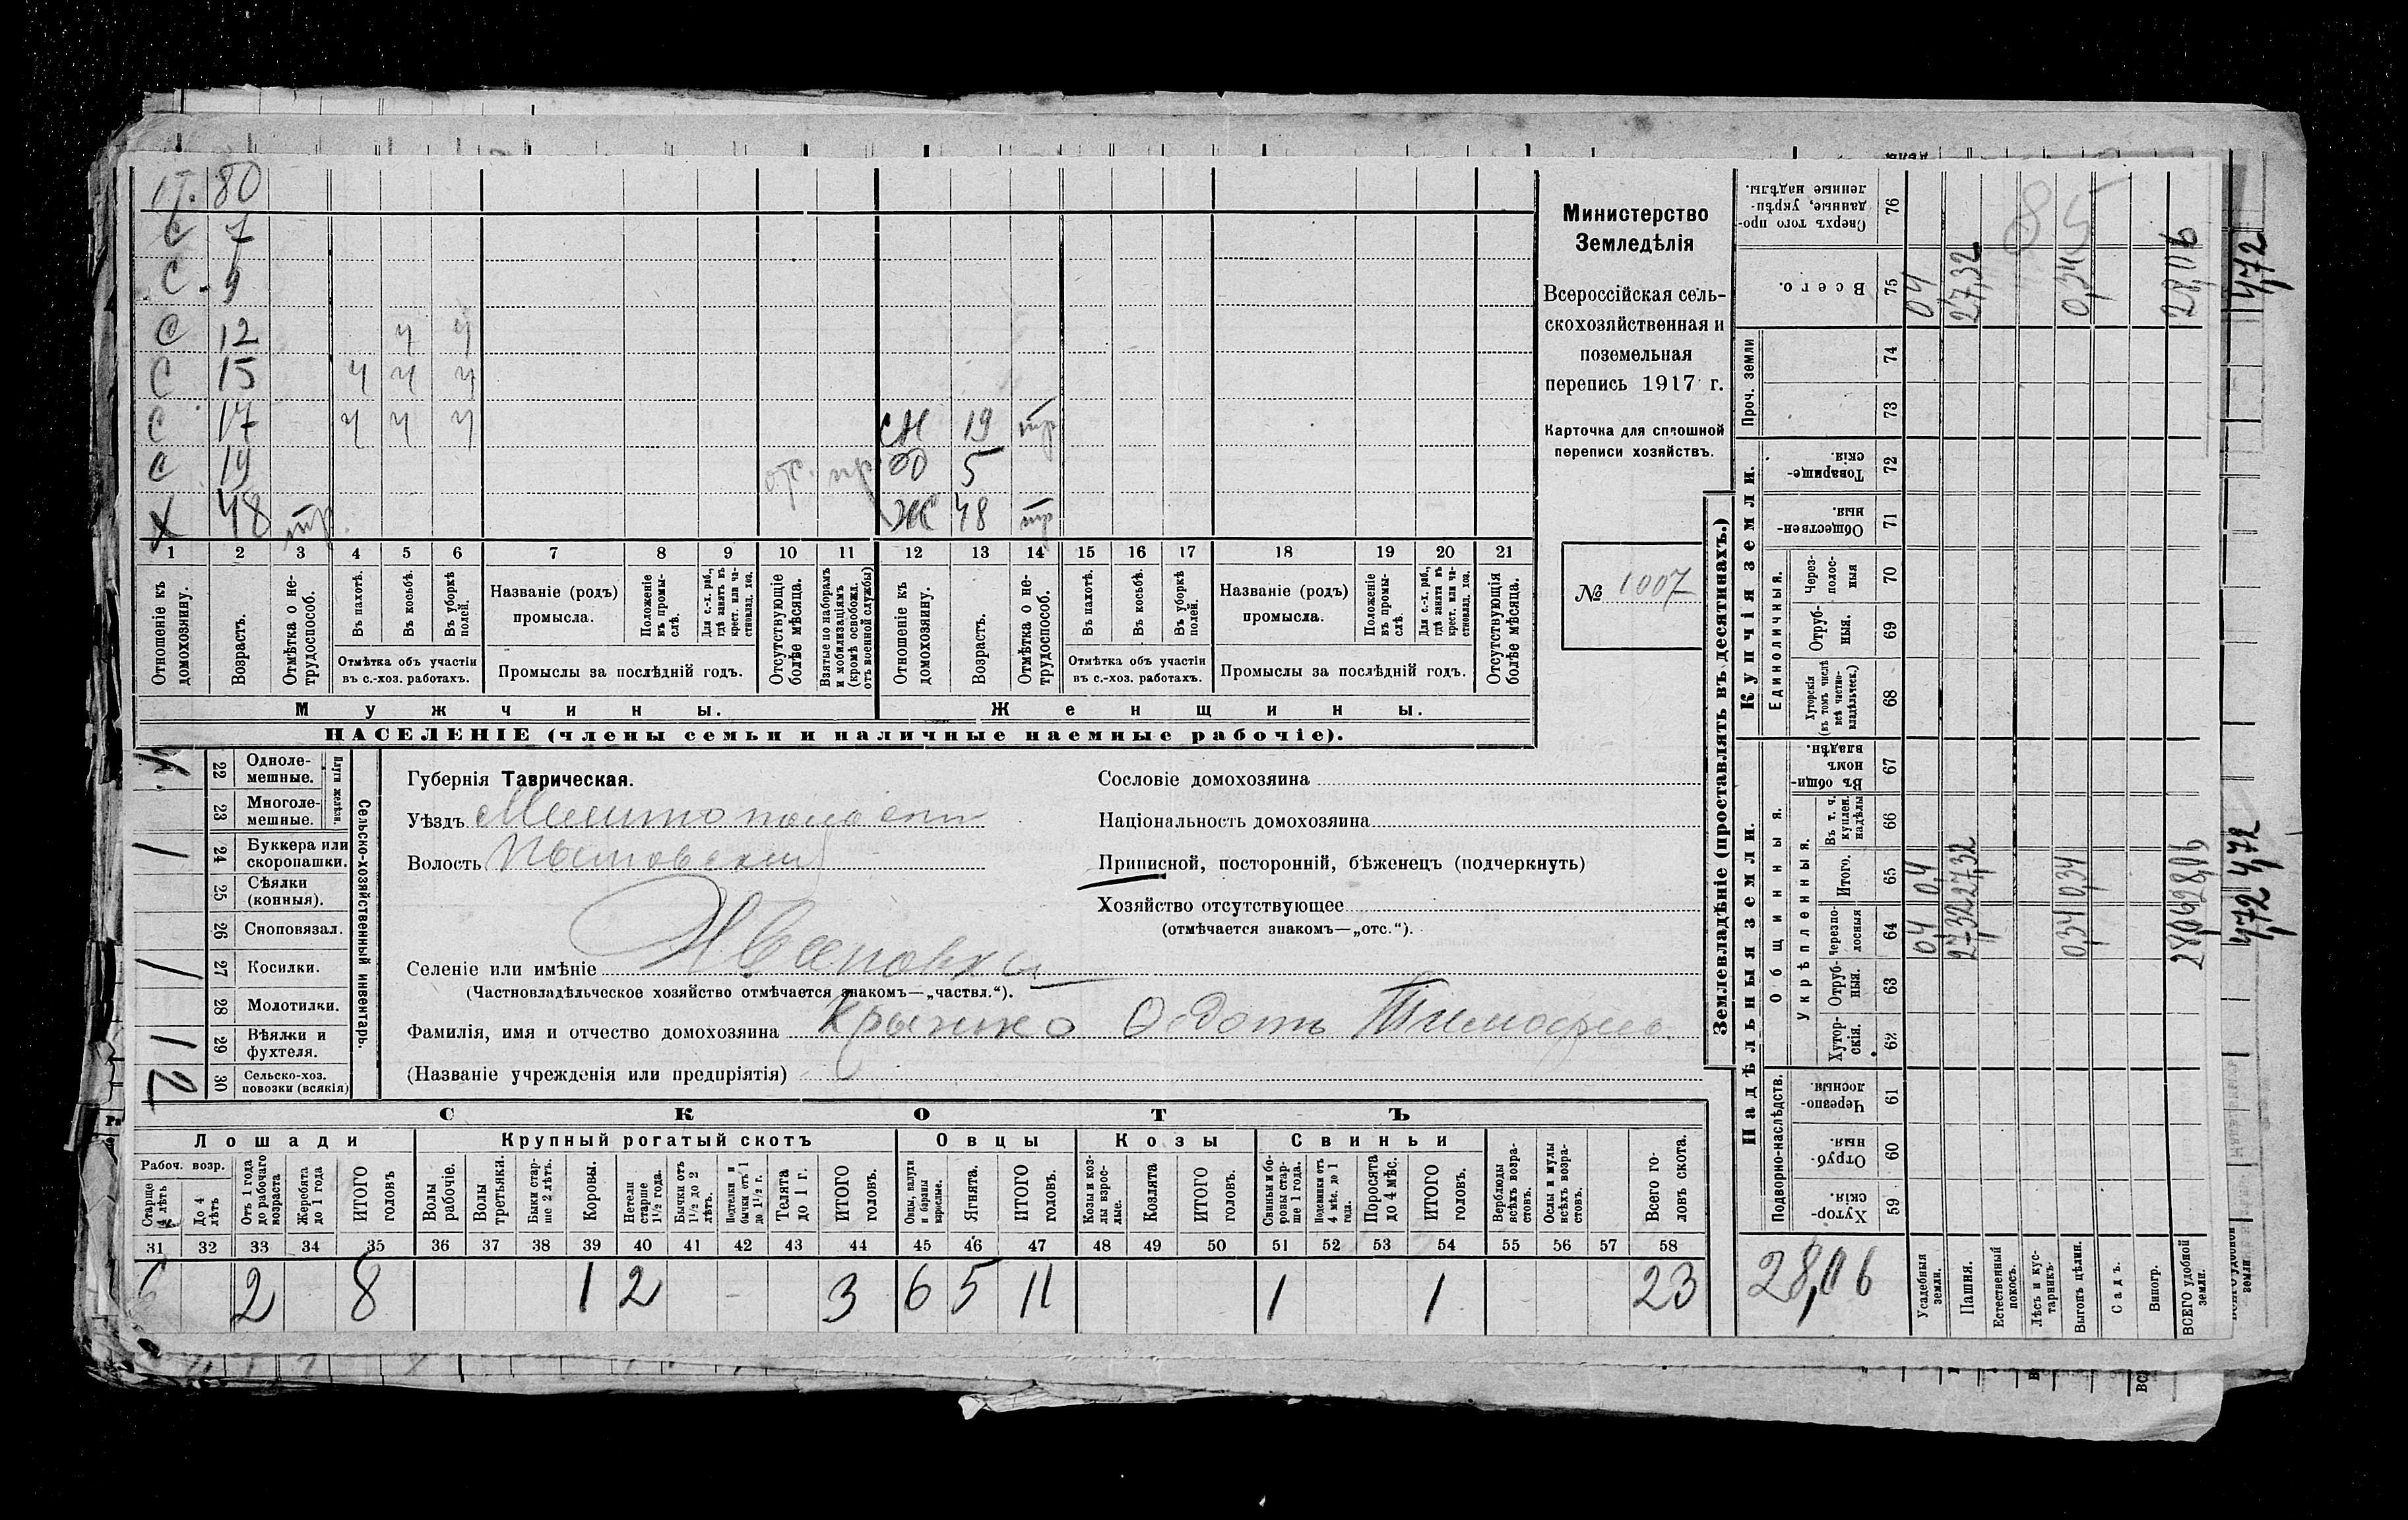 Министерство
Земледѣлія
Всероссійская сель-
скохозяйственная и
поземельная
перепись 1917 г.
Карточка для сплошной
переписи хозяйствъ.
№ 1007
80
С 7
С 9
С 12 ч ч
С 15 ч ч ч
С 17 ч ч ч сн 19 тр
С 19 от. пр 5
Х 48 тр. Ж 48 тр
1 2 3 4 5 6 7 8 9 10 11 12 13 14 15 16 17 18 19 20 21
Отношеніе къ домохозяину.
Возрастъ.
Отмѣтка о не-трудоспособ.
Въ пахотѣ.
Въ косьбѣ.
Въ уборкѣ полей.
Отмѣтка объ участіи въ с.-хоз. работахъ.
Названіе (родъ) промысла.
Положеніе въ промы-слѣ.
Для с.-х. раб., гдѣ занятъ въ крест. или ча-стновлад. хоз.
Промыслы за послѣдній годъ.
Отсутствующіе болѣе мѣсяца.
Взятые по наборамъ и мобилизаціямъ (кромѣ освобожд. отъ военной службы)
Отношеніе къ домохозяину.
Возрастъ.
Отмѣтка о не-трудоспособ.
Въ пахотѣ.
Въ косьбѣ.
Въ уборкѣ полей.
Отмѣтка объ участіи въ с.-хоз. работахъ.
Названіе (родъ) промысла.
Положеніе въ промы-слѣ.
Для с.-х. раб., гдѣ занята въ крест. или ча-стновлад. хоз.
Промыслы за послѣдній годъ.
Отсутствующія болѣе мѣсяца.
Мужчины.
Женщины.
НАСЕЛЕНІЕ (члены семьи и наличные наемные рабочіе).
Сельско-хозяйственный инвентарь.
Плуги желѣзн.
22 Одноле-мешные.
23 Многоле-мешные.
1 24 Буккера или скоропашки.
25 Сѣялки (конныя).
26 Сноповязал.
1 27 Косилки.
28 Молотилки.
1 29 Вѣялки и фухтеля.
2 30 Сельско-хоз. повозки (всякія)
Губернія Таврическая.
Уѣздъ Мелитопольскій
Волость
Селеніе или имѣніе Ивановка
(Частновладѣльческое хозяйство отмѣчается знакомъ—„частвл.“).
Фамилія, имя и отчество домохозяина Крынко Федотъ Тимофеев.
(Названіе учрежденія или предпріятія)
Сословіе домохозяина
Національность домохозяина
Приписной, посторонній, бѣженецъ (подчеркнуть)
Хозяйство отсутствующее
(отмѣчается знакомъ—„отс.“).
СКОТЪ
Лошади
Крупный рогатый скотъ
Овцы
Козы
Свиньи
Рабоч. возр.
Старше 4 лѣтъ
До 4 лѣтъ
Отъ 1 года до рабочаго возраста
Жеребята до 1 года
ИТОГО головъ
Волы рабочіе.
Волы третьяки.
Быки стар-ше 2 лѣтъ.
Коровы.
Нетели старше 1½ года.
Бычки отъ 1½ до 2 лѣтъ.
Подтелки и бычки отъ 1 до 1½ г.
Телята до 1 г.
ИТОГО головъ.
Овцы, валухи и бараны взрослые.
Ягнята.
ИТОГО головъ.
Козы и коз-лы взрос-лые.
Козлята
ИТОГО головъ.
Свиньи и бо-ровы стар-ше 1 года.
Подсвинки отъ 4 мѣс. до 1 года.
Поросята до 4 мѣс.
ИТОГО головъ.
Верблюды всѣхъ возра-стовъ.
Ослы и мулы всѣхъ возра-стовъ.
Всего го-ловъ скота.
31 32 33 34 35 36 37 38 39 40 41 42 43 44 45 46 47 48 49 50 51 52 53 54 55 56 57 58
6 2 8 1 2 3 6 5 11 1 1 23
Землевладѣніе (проставлять въ десятинахъ.)
Надѣльныя земли.
Купчія земли.
Проч. земли
Подворно-наслѣдств.
Общинныя.
Укрѣпленныя.
Единоличныя.
59 Хутор-скія.
60 Отруб-ныя.
61 Черезпо-лосныя
62 Хутор-скія.
63 Отруб-ныя.
64 Черезпо-лосныя
65 Итого.
66 Въ т. ч. куплен. надѣлы
67 Въ общи-номъ владѣн.
68 Хуторскія (въ томъ числѣ всѣ частно-владѣльческ.)
69 Отруб-ныя.
70 Через-полос-ныя
71 Обществен-ныя.
72 Товарище-скія.
73
74
75 Всего.
76 Сверхъ того про-данные, укрѣп-ленные надѣлы.
28,06
Усадебныя земли. 04 0,4 04
Пашня. 27,32 27,32 27,32
Естественный покосъ.
Лѣсъ и кус-тарникъ.
Выгонъ цѣлин. 0,34 0,34 0,34
Садъ.
Виногр.
ВСЕГО удобной земли. 28,06 28,06 28,06
85
4,72 4,72 4,72